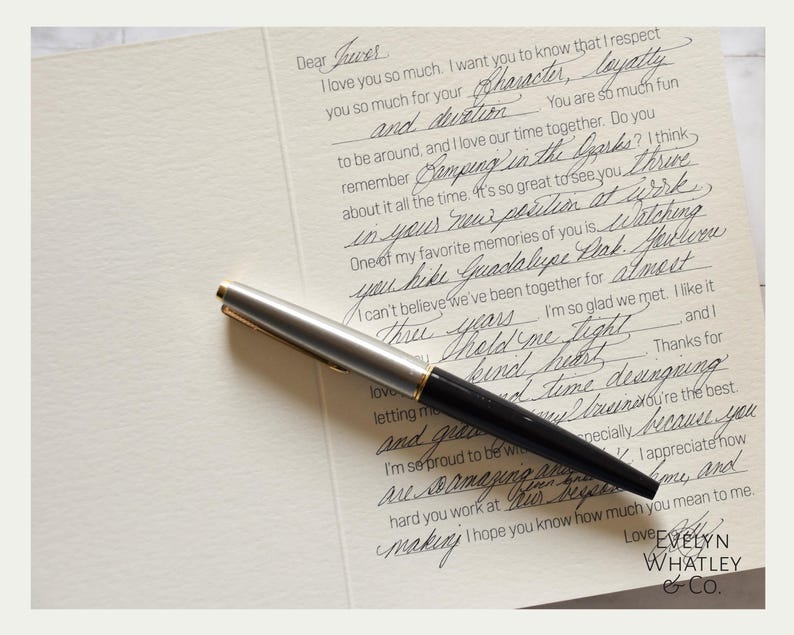 Dear Trevor
I love you so much. I want you to know that I respect
you so much for your Character, loyalty
and devotion. You are so much fun
to be around, and I love our time together. Do you
remember Camping in the Ozarks? I think
about it all the time. It's so great to see you thrive
in your new position at work
One of my favorite memories of you is Watching
you hike Guadalupe Peak. You were
I can't believe we've been together for almost
three years. I'm so glad we met. I like it
hold me tight, and I
love kind heart. Thanks for
letting me time designing
and my business You're the best.
I'm so proud to be with especially because you
are so amazing and I appreciate how
hard you work at our home, and
making I hope you know how much you mean to me.
Love
EVELYN
WHATLEY
& CO.